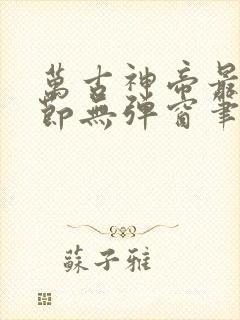 萬古神帝最
節無彈窗筆
蘇子雅